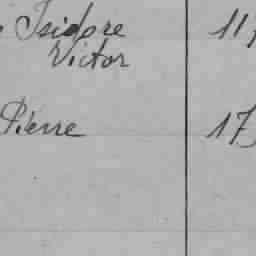 Isidore 11
Victor
Pierre 17